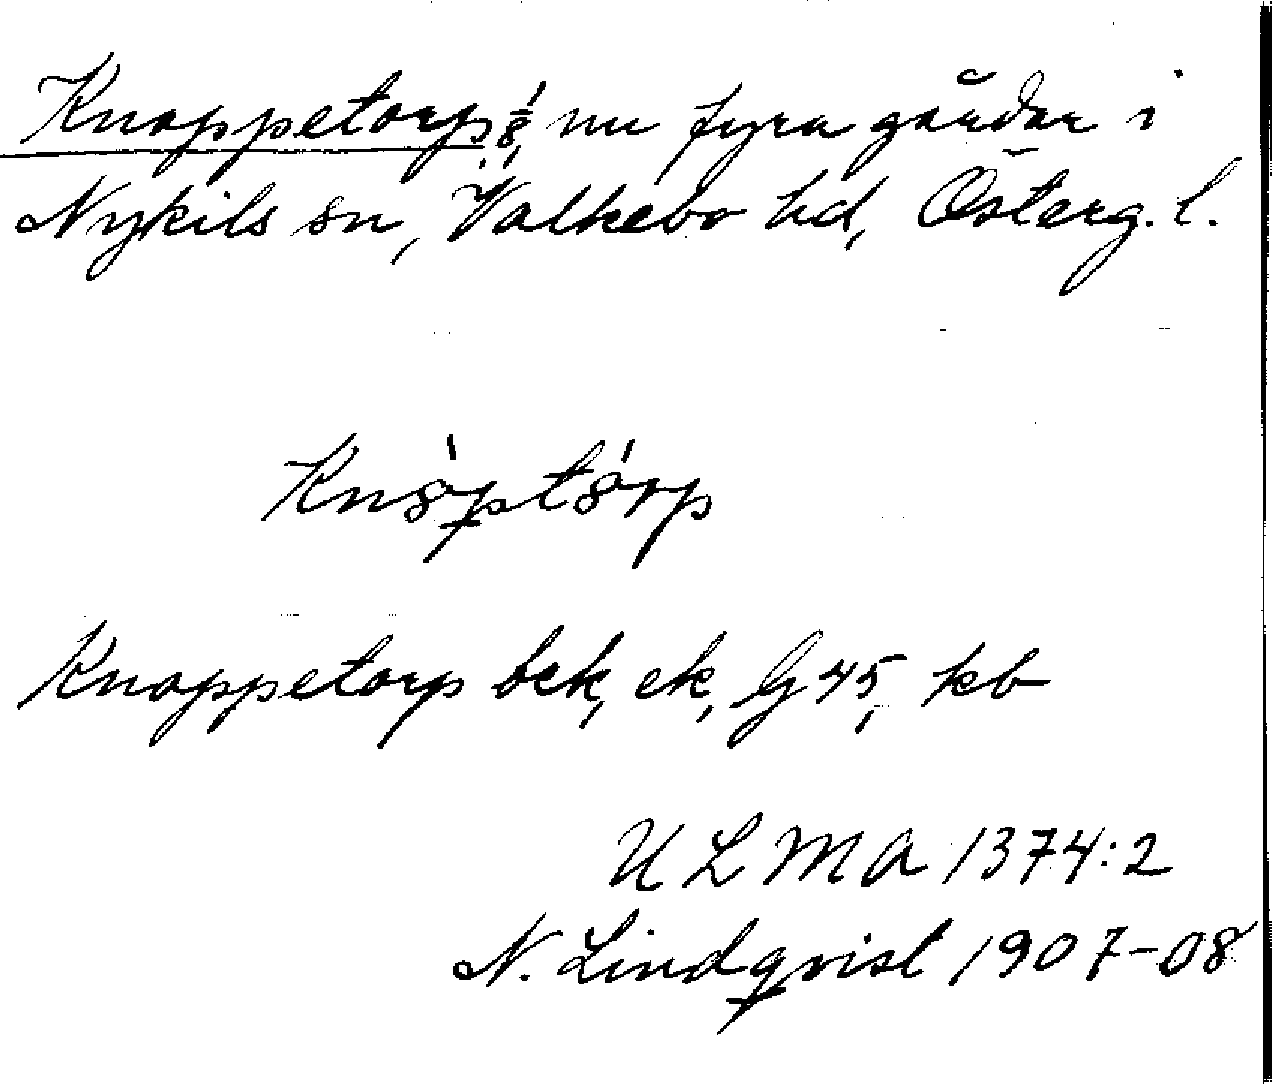 Knappetorp 1/8, nu fyra gårdar i
Nykils sn, Valkebo hd, Österg. l.
Knàptórp
Knappetorp bek, ek, G 45, kb
ULMA 1374:2
N. Lindqvist 1907-08